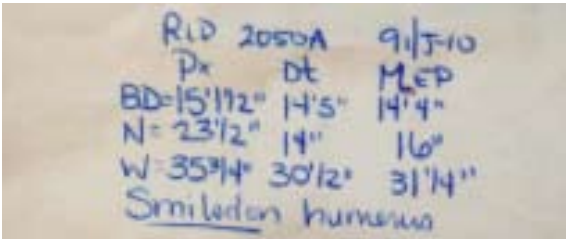 RLP 2050A 91/J-10
Px Dt M.EP
BD=15'1/2" 14'5" 14'4"
N= 23'/2" 14" 16"
W= 35 3/4" 30'/2" 31'/4"
Smilodon humerus